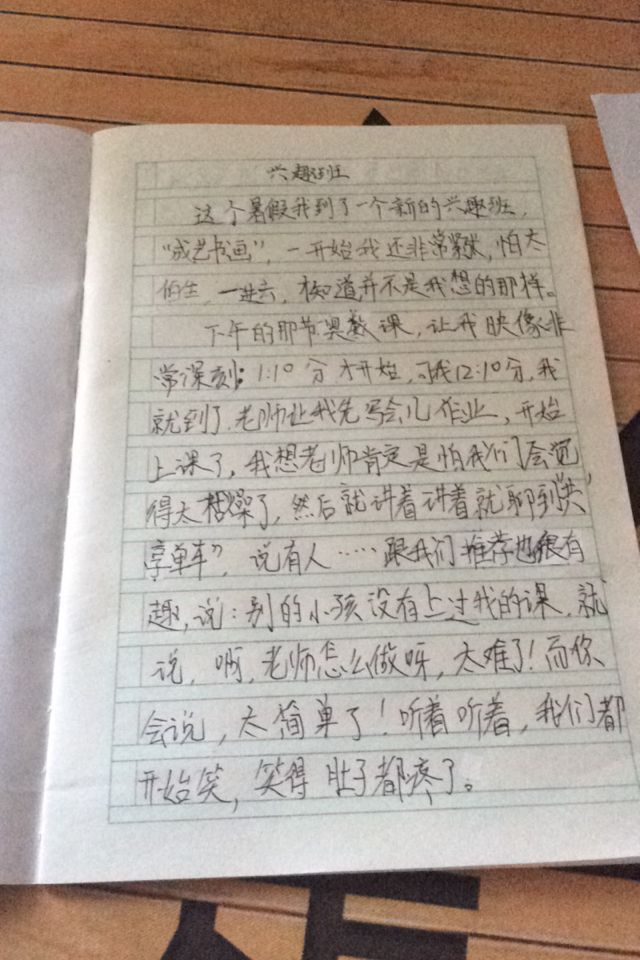 兴趣班
这个暑假我到了一个新的兴趣班，
“成艺书画”，一开始我还非常紧张，怕太
陌生，一进去，才知道并不是我想的那样。
下午的那节奥数课，让我映像非
常深刻：1:10分才开始，可我12:10分，我
就到了，老师让我先写会儿作业，开始
上课了，我想老师肯定是怕我们会觉
得太枯燥了，然后就讲着讲着就聊到“共
享单车”，说有人……跟我们推荐也很有
趣，说：别的小孩没有上过我的课，就
说，啊，老师怎么做呀，太难了！而你
会说，太简单了！听着听着，我们都
开始笑，笑得肚子都疼了。